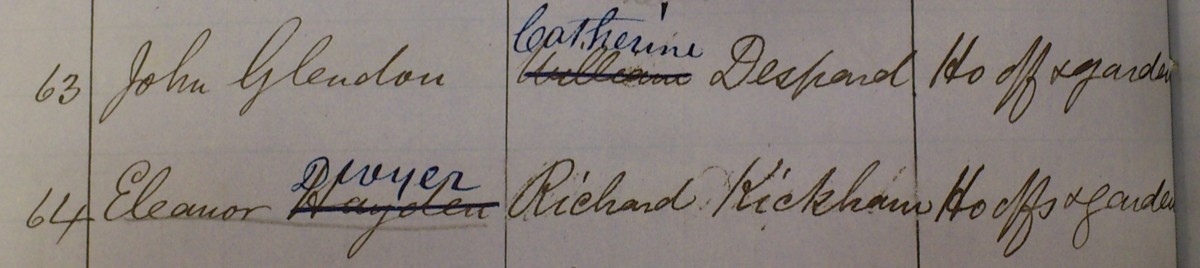 Catherine
63 John Glendon William Despard Ho off & garden
Dwyer
64 Eleanor Hayden Richard Kickham Ho offs & garden